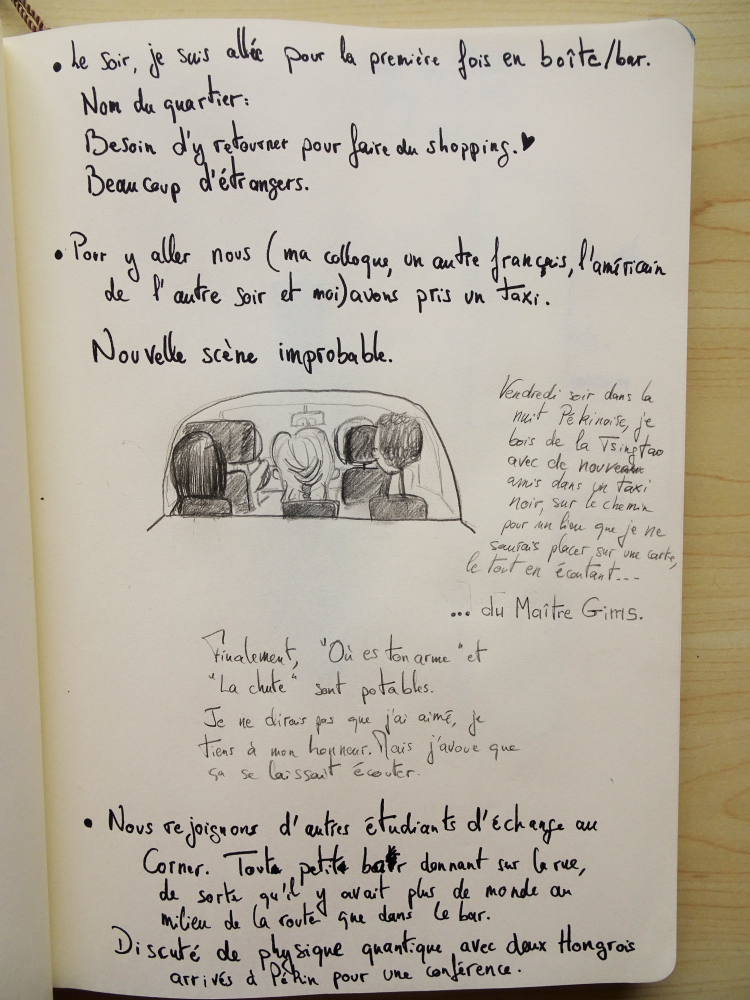 • Le soir, je suis allée pour la première fois en boîte/bar.
Nom du quartier:
Besoin d'y retourner pour faire du shopping.♥
Beaucoup d'étrangers.
• Pour y aller nous (ma colloque, un autre français, l'américain
de l'autre soir et moi) avons pris un taxi.
Nouvelle scène improbable.
Vendredi soir dans la
nuit Pékinoise, je
bois de la Tsingtao
avec de nouveaux
amis dans un taxi
noir, sur le chemin
pour un lieu que je ne
saurais placer sur une carte,
le tout en écoutant...
... du Maître Gims.
Finalement, "Où es ton arme" et
"La chute" sont potables.
Je ne dirais pas que j'ai aimé, je
tiens à mon honneur. Mais j'avoue que
ça se laissait écouter.
• Nous rejoignons d'autres étudiants d'échange au
Corner. Tout petit bar donnant sur la rue,
de sorte qu'il y avait plus de monde au
milieu de la route que dans le bar.
Discuté de physique quantique avec deux Hongrois
arrivés à Pékin pour une conférence.